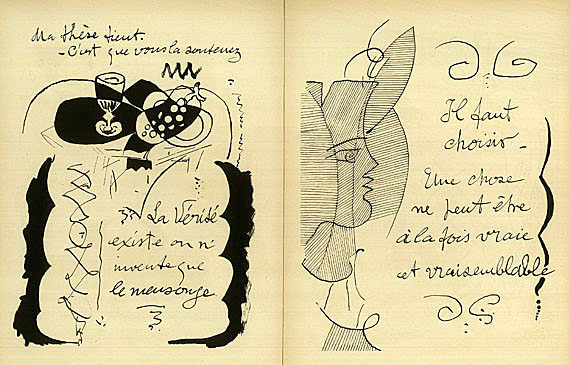 Ma thèse tient.
- C'est que vous la soutenez
La Vérité
existe on n'
invente que
le mensonge
Il faut
choisir -
Une chose
ne peut être
à la fois vraie
et vraisemblable